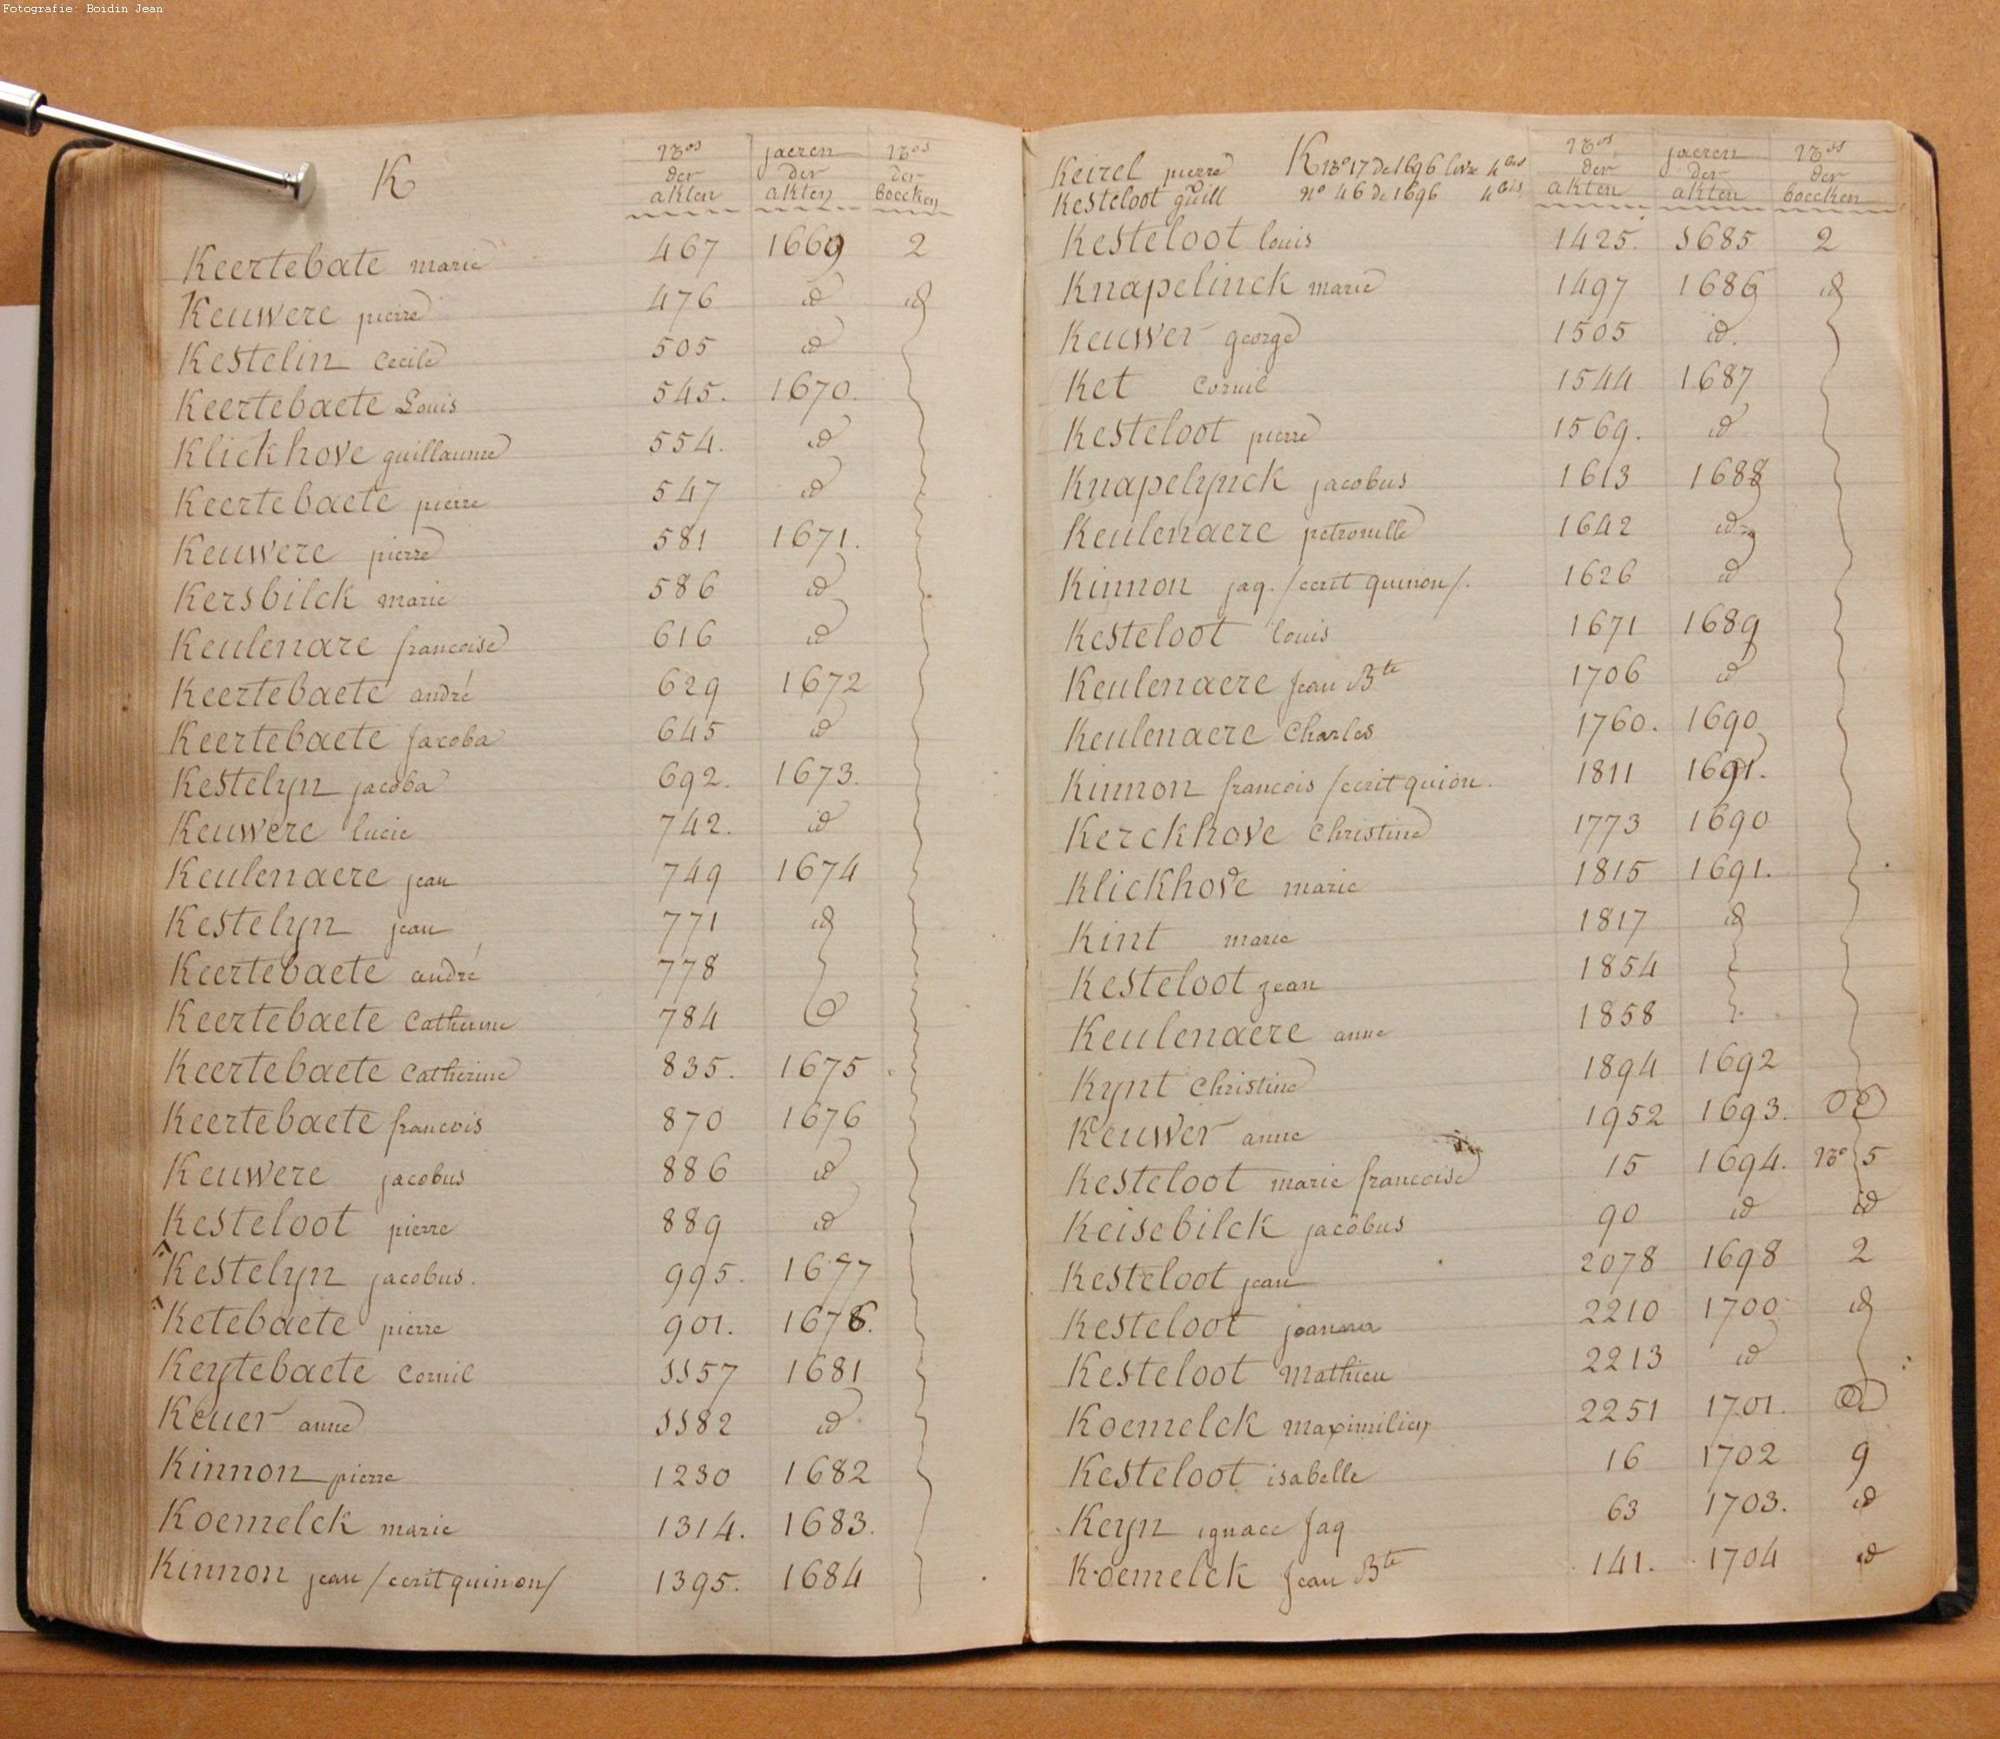 Fotografie: Boidin Jean
K
Nos der akten jaeren der akten Nos der boecken
Keertebate marie 467 1669 2
Keuwere pierre 476 id id
Kestelin Cecile 505 id
Keertebaete Louis 545. 1670.
Klickhove guillaume 554. id
Keertebaete pierre 547 id
Keuwere pierre 581 1671.
Kersbilck marie 586 id
Keulenare francoise 616 id
Keertebaete andré 629 1672
Keertebaete Jacoba 645 id
Kestelyn jacoba 692. 1673.
Keuwere lucie 742. id
Keulenaere jean 749 1674
Kestelyn jean 771 id
Keertebaete andré 778
Keertebaete Catherine 784
Keertebaete Catherine 835. 1675
Keertebaete francois 870 1676
Keuwere jacobus 886 id
Kesteloot pierre 889 id
Kestelyn jacobus. 995. 1677
Ketebaete pierre 901. 1676.
Keytebaete Cornil 1157 1681
Keuer anne 1182 id
Kinnon pierre 1230 1682
Koemelck marie 1314. 1683.
Kinnon jean /ecrit quinon/ 1395. 1684
K
Nos der akten jaeren der akten Nos der boecken
Keirel pierre No 17 de 1696 livre 4bis
Kesteloot guill no 46 de 1696 4bis
Kesteloot louis 1425. 1685 2
Knapelinck marie 1497 1686 id
Keuwer george 1505 id.
Ket Cornil 1544 1687
Kesteloot pierre 1569. id
Knapelynck jacobus 1613 1688
Keulenaere petronille 1642 id
Kinnon jaq. /ecrit quinon/. 1626 id
Kesteloot louis 1671 1689
Keulenaere Jean Bte 1706 id
Keulenaere Charles 1760. 1690
Kinnon francois /ecrit quion. 1811 1691.
Kerckhove Christine 1773 1690
Klickhove marie 1815 1691.
Kint marie 1817 id
Kesteloot jean 1854
Keulenaere anne 1858
Kynt Christine 1894 1692
Keuwer anne 1952 1693.
Kesteloot marie francoise 15 1694. No 5
Keisebilck jacobus 90 id id
Kesteloot jean 2078 1698 2
Kesteloot joanna 2210 1700 id
Kesteloot Mathieu 2213 id
Koemelck Maximilien 2251 1701.
Kesteloot isabelle 16 1702 9
Keyn ignace Jaq 63 1703. id
Koemelck Jean Bte 141. 1704 id